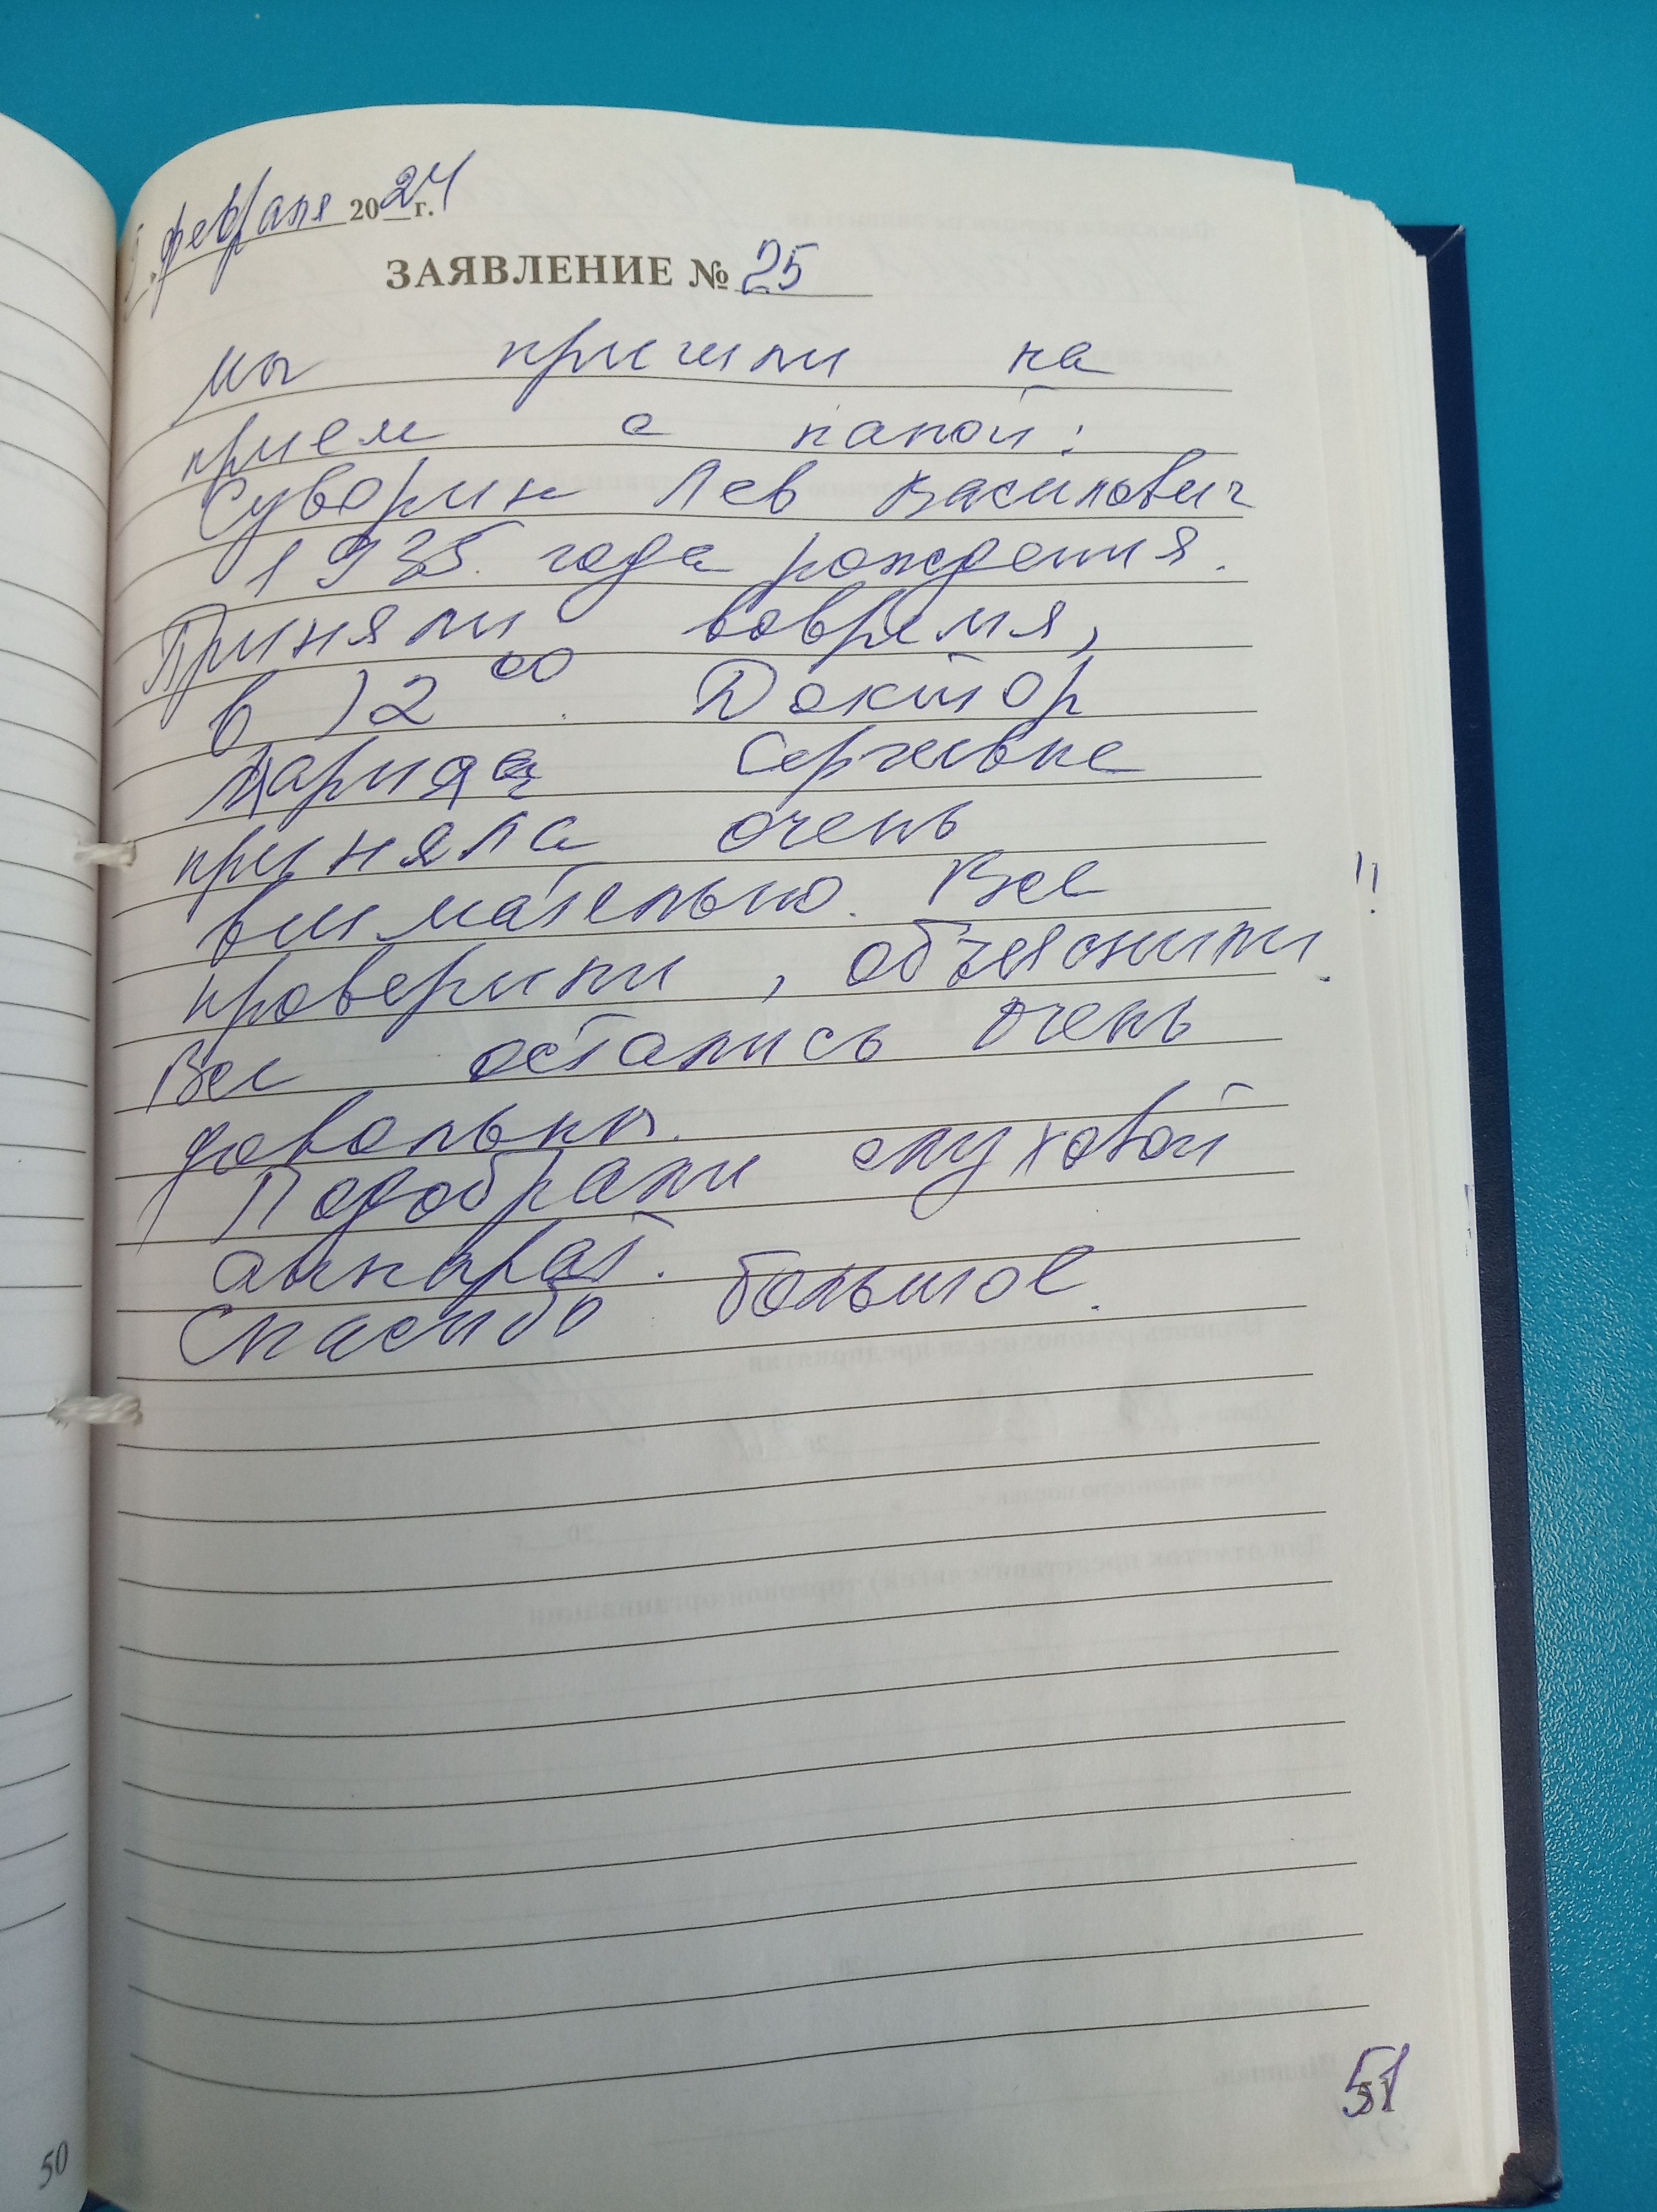 февраля 2024 г.
ЗАЯВЛЕНИЕ № 25
мы пришли на
прием с папой:
Суворин Лев Васильевич
1935 года рождения.
Приняли вовремя,
в 12 00. Доктор
Сергеевна
приняла очень
внимательно. Все
проверили, объяснили.
!!
Все остались очень
довольны.
Подобрали слуховой
аппарат.
Спасибо большое.
51
50